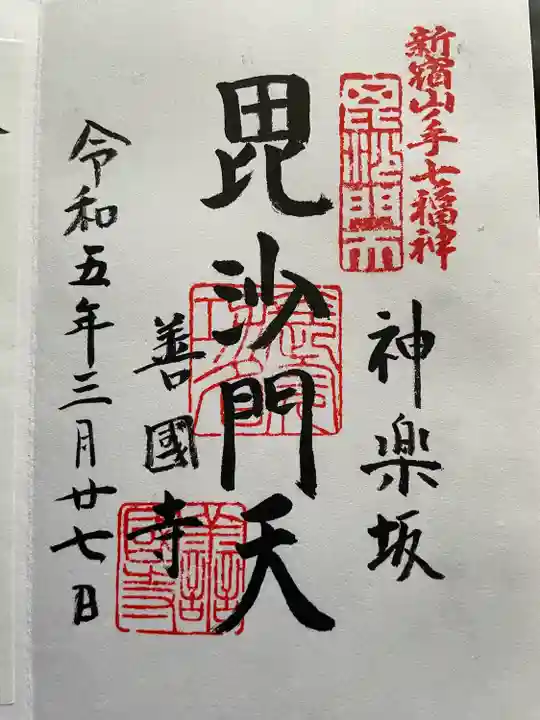 新宿山ノ手七福神
毘沙門天
神楽坂
毘沙門天
善國寺
令和五年三月廿七日